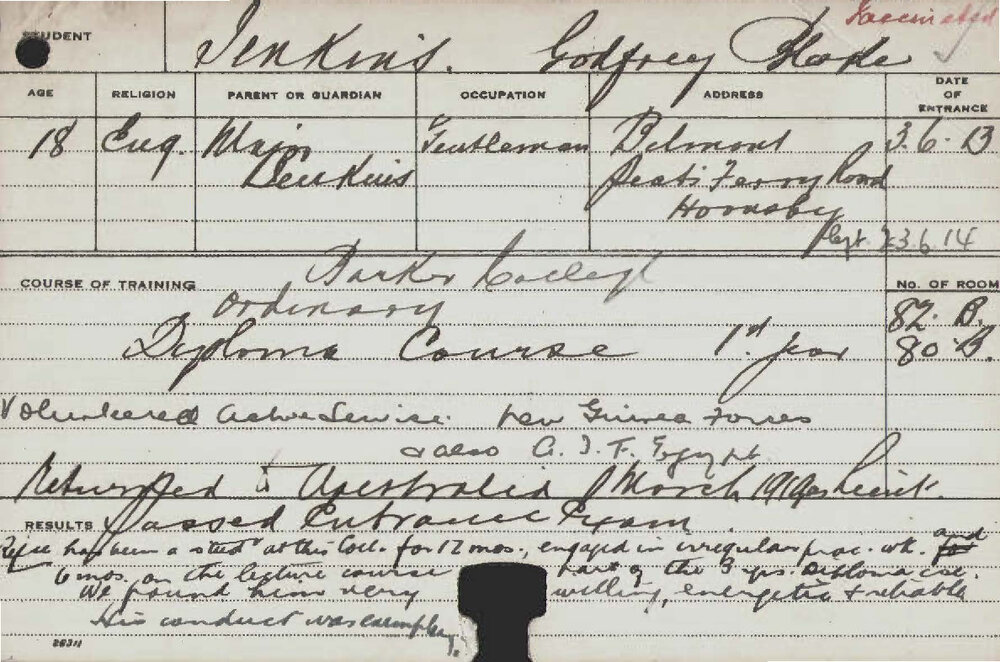 Vaccinated
STUDENT Jenkins. Godfrey Blake
AGE RELIGION PARENT OR GUARDIAN OCCUPATION ADDRESS DATE OF ENTRANCE
18 Eng. Major Gentleman Belmont 3.6.13
Jenkins Peats Ferry Road
Hornsby
Left 23.6.14
Barker College
COURSE OF TRAINING No. OF ROOM
Ordinary 82. B.
Diploma Course 1st year 80 B.
Volunteered Active Service. New Guinea Forces
& also A. I. F. Egypt
Returned to Australia March 191
RESULTS Passed Entrance Exam.
has been a stud. at this Coll. for 12 mos., engaged in irregular prac. wk. and
6 mos. on the lecture course part of the 3 yrs. Diploma cse.
We found him very willing, energetic & reliable
His conduct was exemplary.
26311